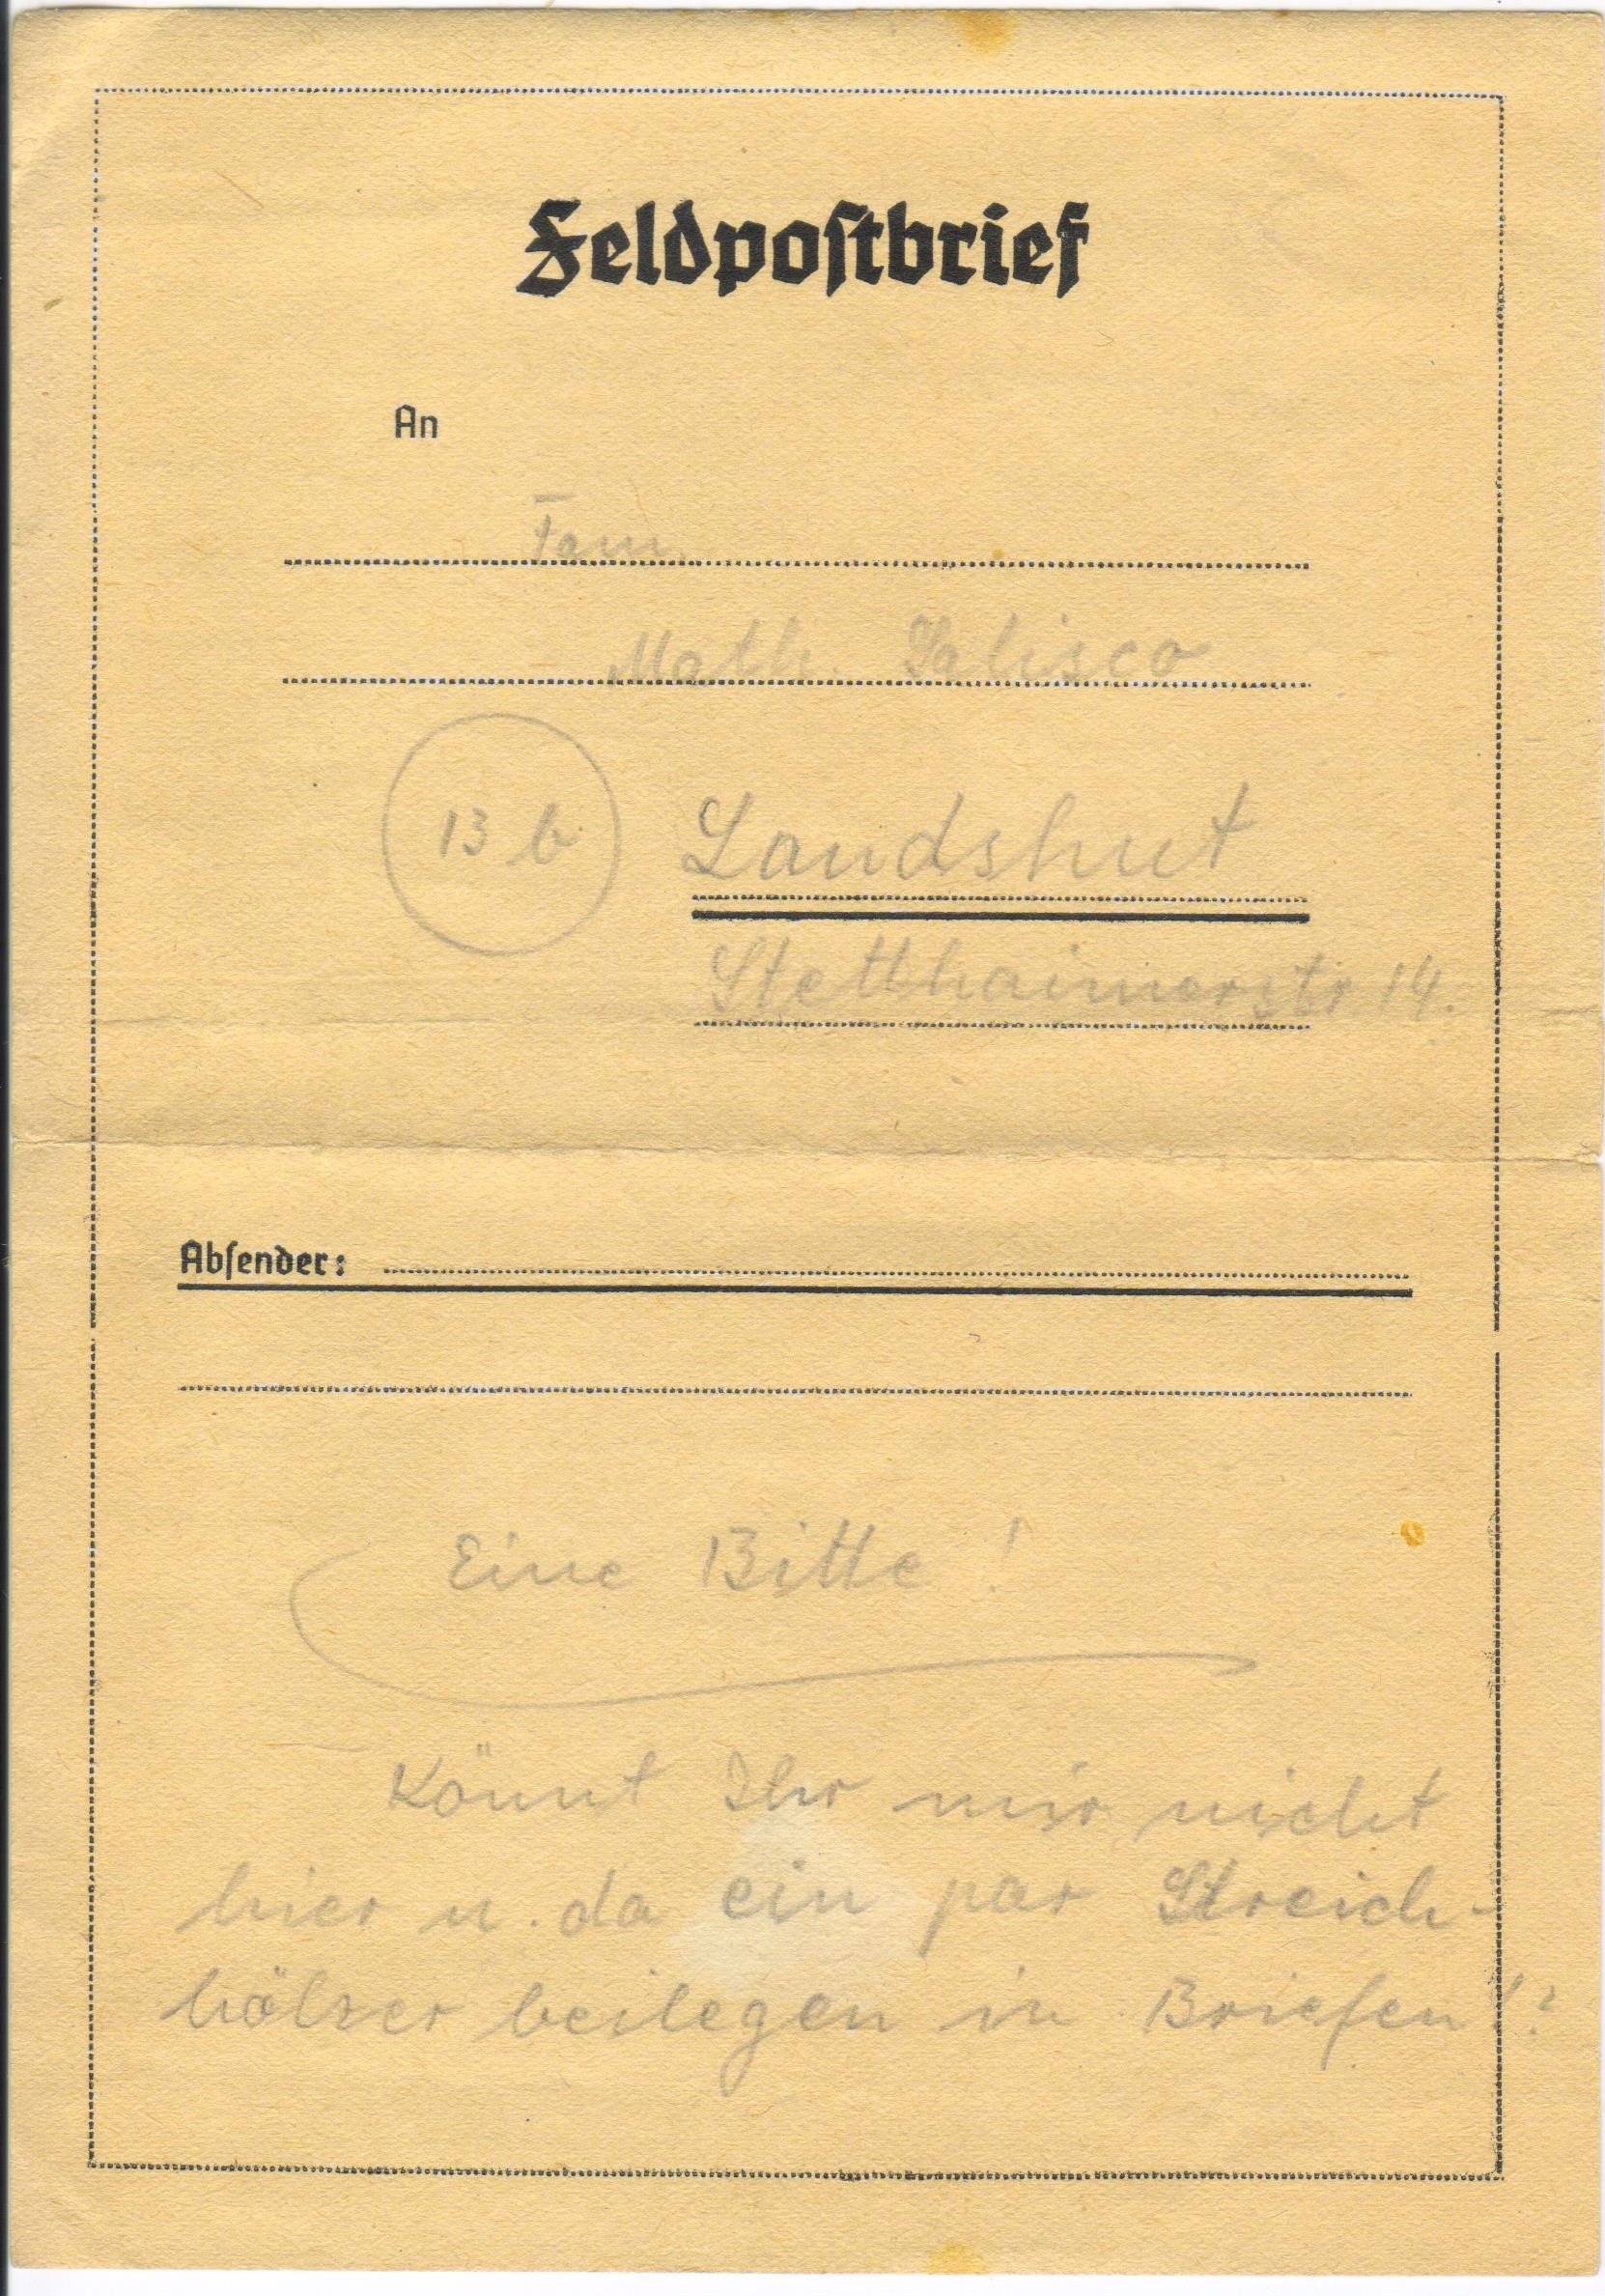 Feldpostbrief
An
Fam.
Math. Salisco
13 b
Landshut
Stetthaimerstr 14.
Absender:
Eine Bitte !
Könnt Ihr mir nicht
hier u. da ein par Streich-
hölzer beilegen in Briefen!?